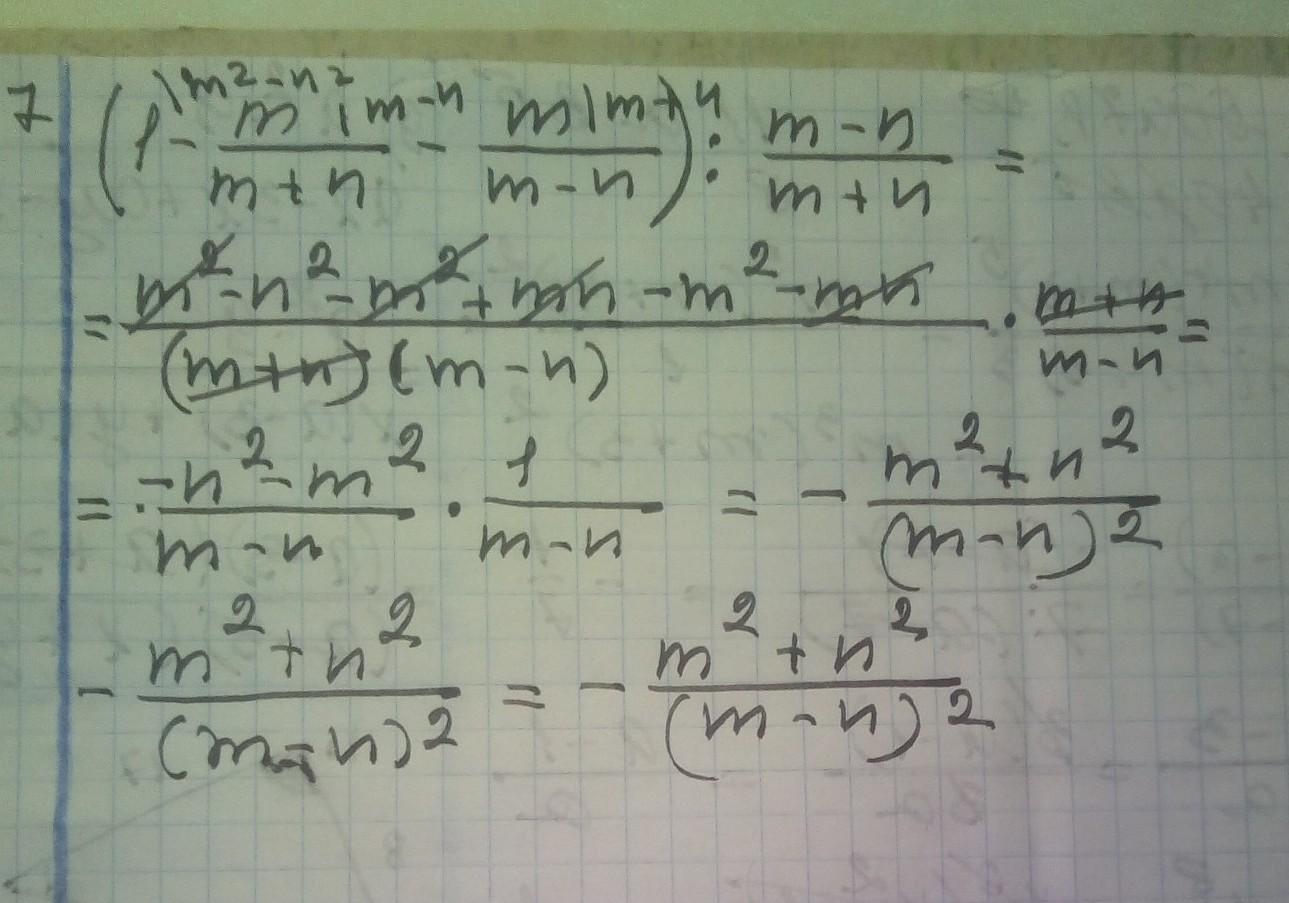 7 (1\m²-n² - m\m-n/(m+n) - m\m+n/(m-n)) : (m-n)/(m+n) =
= (m²-n²-m²+mn-m²-mn)/((m+n)(m-n)) · (m+n)/(m-n) =
= (-n²-m²)/(m-n) · 1/(m-n) = - (m²+n²)/(m-n)²
- (m²+n²)/(m-n)² = - (m²+n²)/(m-n)²